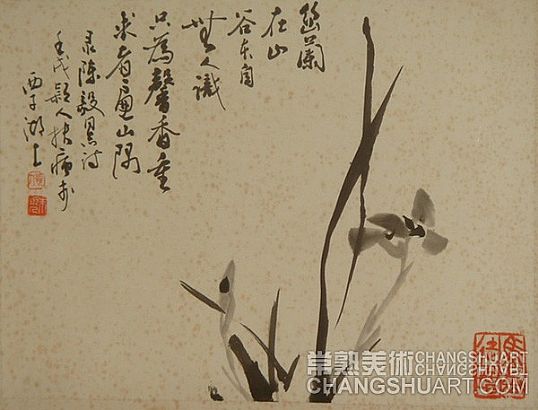 幽蘭
在山
谷本自
無人識
只為馨香重
求者遍山隅
录陈毅同志诗
壬戌颖人扶病于
西子湖上
常熟美術
CHANGSHUART
CHANGSHUART
CHANGSHUART.COM